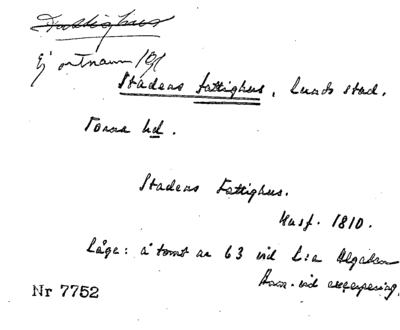 Fattighus
Ej ortnamn
Stadens fattighus, Lunds stad.
Torna hd.
Stadens Fattighus.
Husf. 1810.
Läge: å tomt nr 63 vid L:a Algatan
Anm. vid excerpering.
Nr 7752